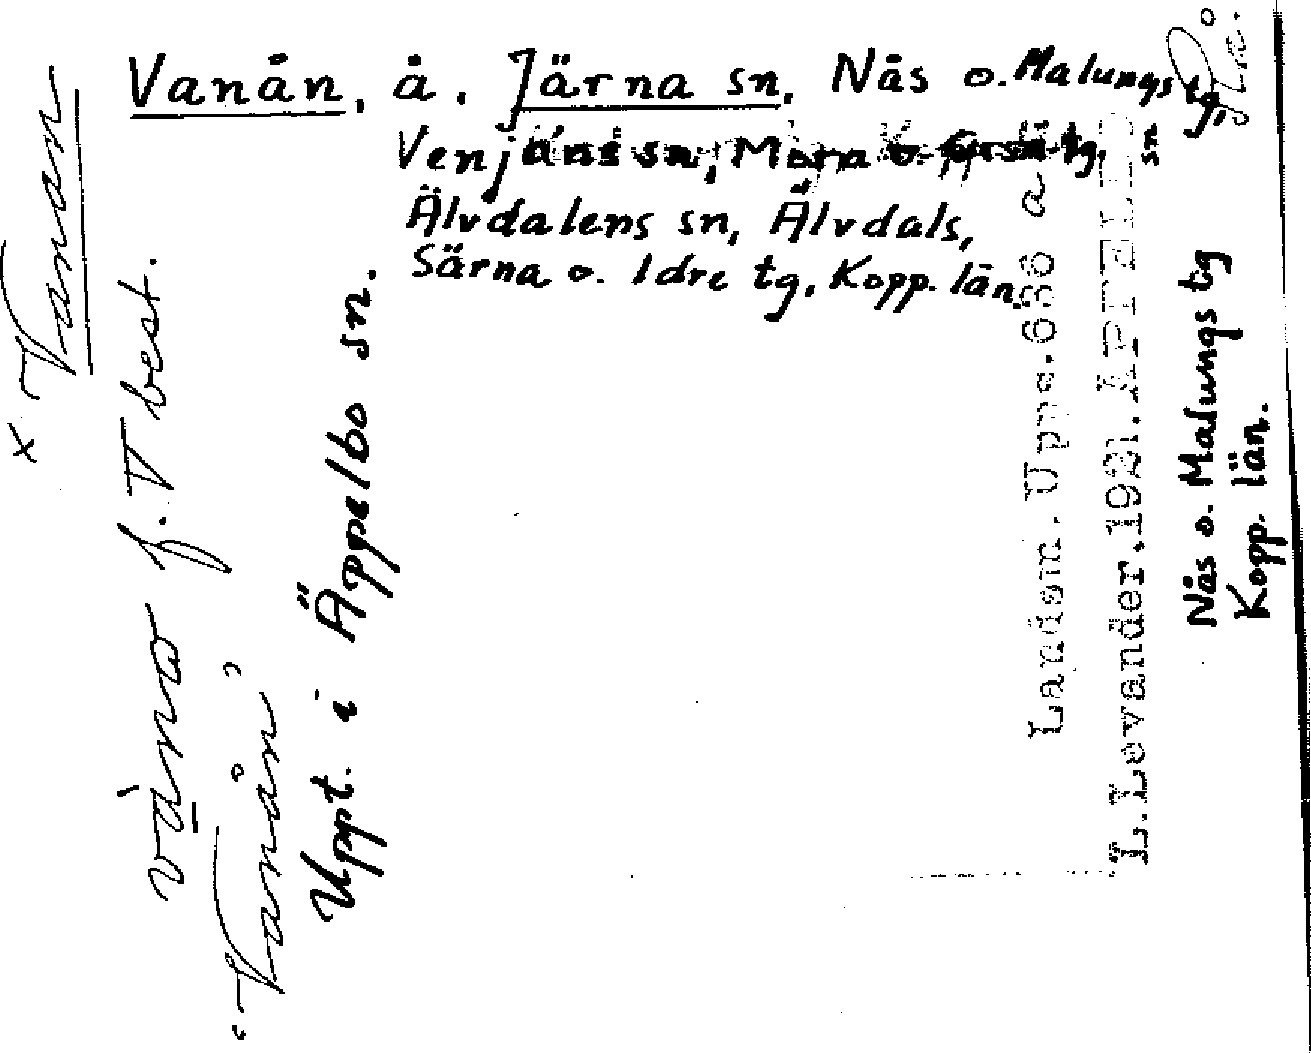 Vanån, å. Järna sn, Nås o. Malungs tg,
Venjans sn, Mora o. Orsa tg,
Älvdalens sn, Älvdals,
Särna o. Idre tg, Kopp. län.
× Vanan
våna f. V best.
"Vanån"
Uppt. i Äppelbo sn.
Landsm. Upps. 636 a
L. Levander. 1921. ÄPPELBO sn
Nås o. Malungs tg
Kopp. län.